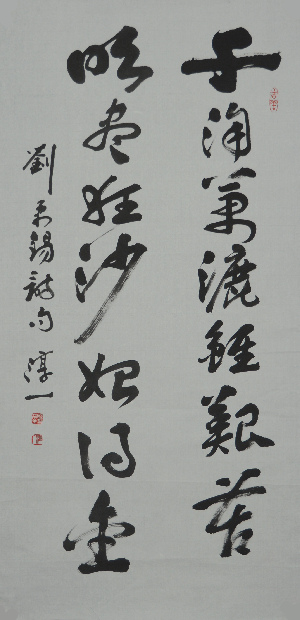 千淘萬漉雖艱苦
吹盡狂沙始得金
劉禹錫詩句 淳一